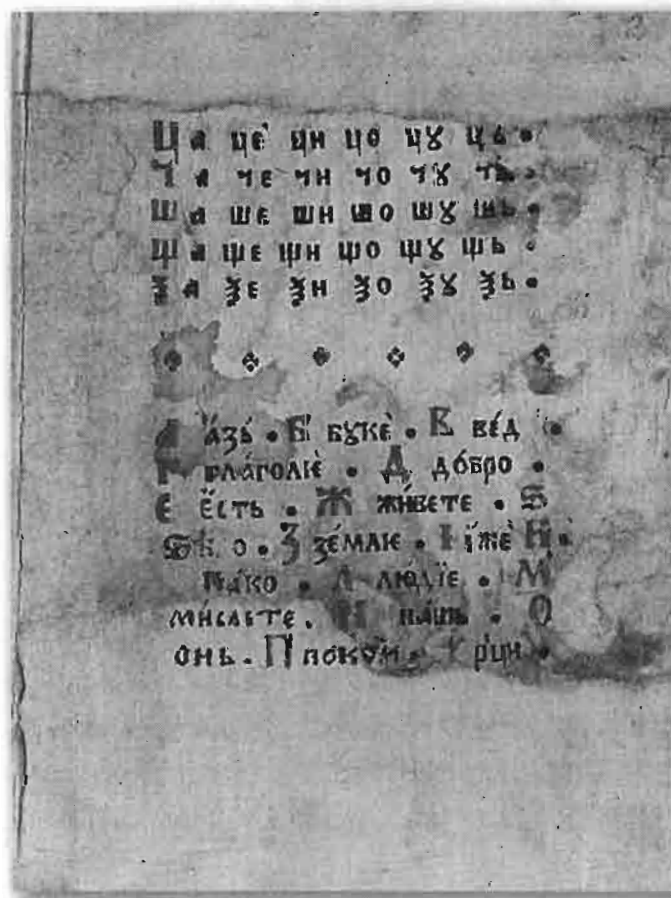 Ца це ци цо цꙋ ць •
Ча че чи чо чꙋ чь •
Ша ше ши шо шꙋ шь •
Ща ще щи що щꙋ щь •
Ѯа ѯе ѯи ѯо ѯꙋ ѯь •
А а́зь • Б бꙋкѐ • В ве́д •
Г гла́голѥ • Д до́бро •
Є є҆́сть • Ж жи́вєте • Ѕ
Ѕѣ о • З зе́млѥ • І и́же̏ К •
ка́ко • Л лю́дїе • М
ми́сльте • Н на́шь • О
онь • П поко́и • Р рци •